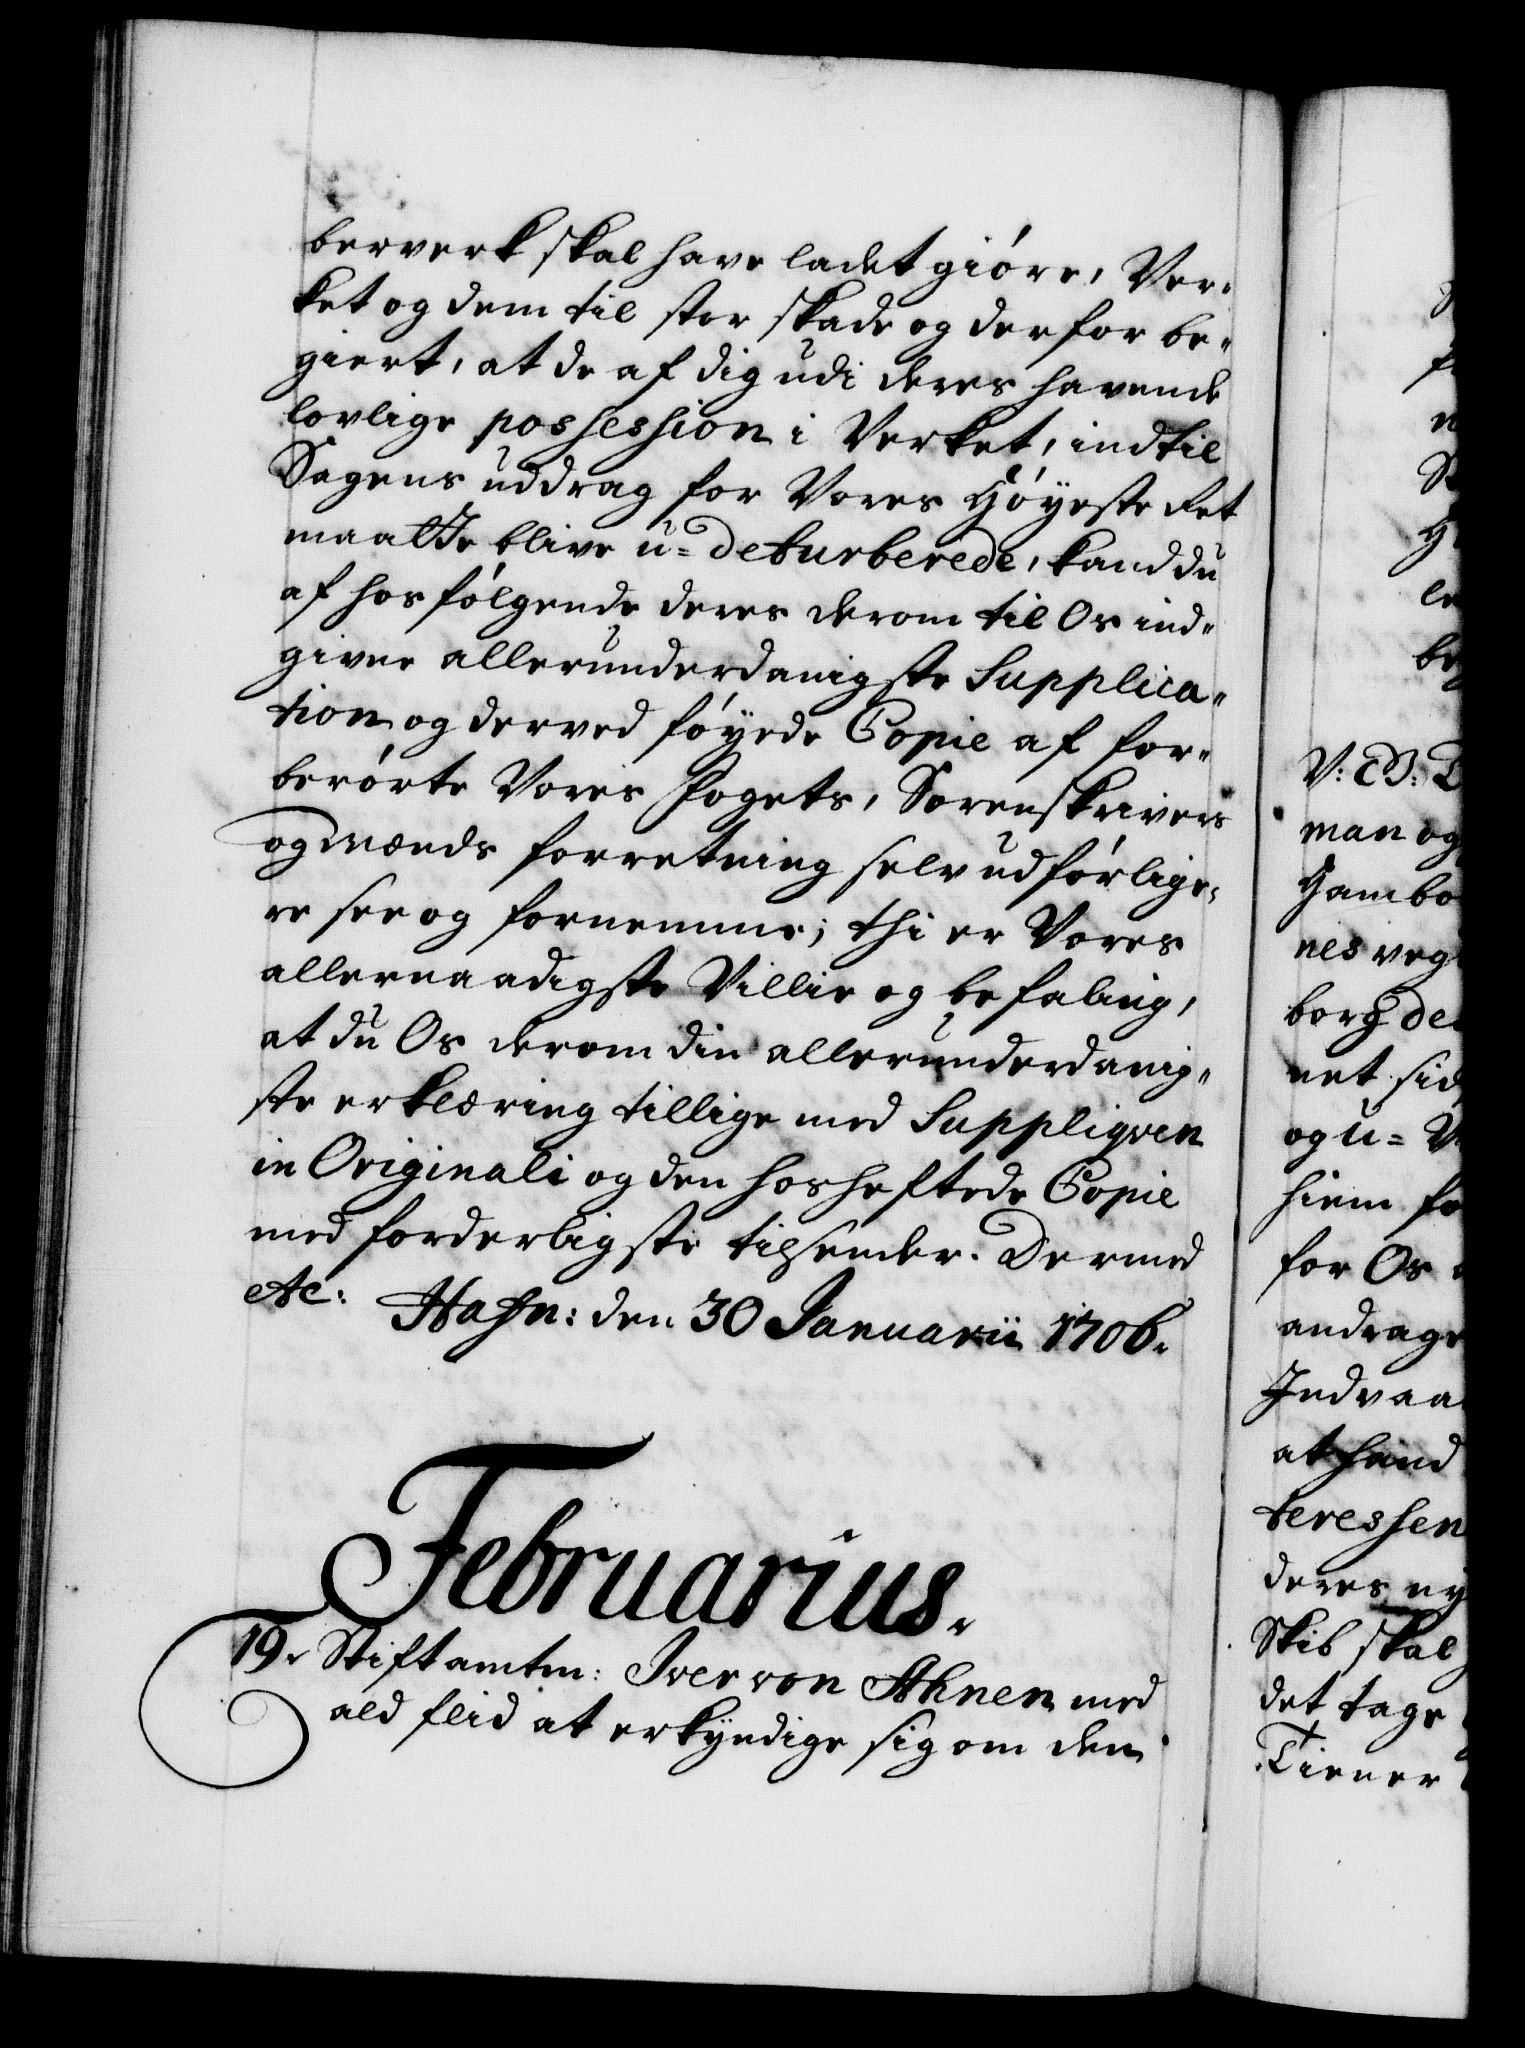 berverk skal have ladet giøre, Ver-
ket og dem til stor skade og derfor be-
giert, at de af dig udi deres havende
lovlige possession i Verket, indtil
Sagens uddrag for Vores Høyeste Ret
maatte blive u-deturberede, kand du
af hosfølgende deres derom til Os ind-
given allerunderdanigste Supplica-
tion og derved føyede Copie af for-
berørte Vores Fogets, Sorenskrivers
og mænds forretning selv udførlige-
re see og fornemme; thi er Vores
allernaadigste Villie og befaling,
at du Os derom din allerunderdanig-
ste erklæring tillige med Suppliqven
in Originali og den hosheftede Copie
med forderligste tilsender. Dermed
etc: Hafn: den 30 Januarii 1706.
Februarius.
19. Stiftamtm: Iver von Ahnen med
ald flid at erkyndige sig om den
V: G:
man og
Hambo
nes veg
borg de
net sid
og u-
hiem
for Os
andrage
Indvaa
at hand
teressen
deres ny
Skib skal
det tage
Tiener